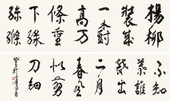 楊柳
裝成
一樹
高万
條垂
下綠
絲絛
不知
葉誰
裁出
二月
春風
似剪
刀細